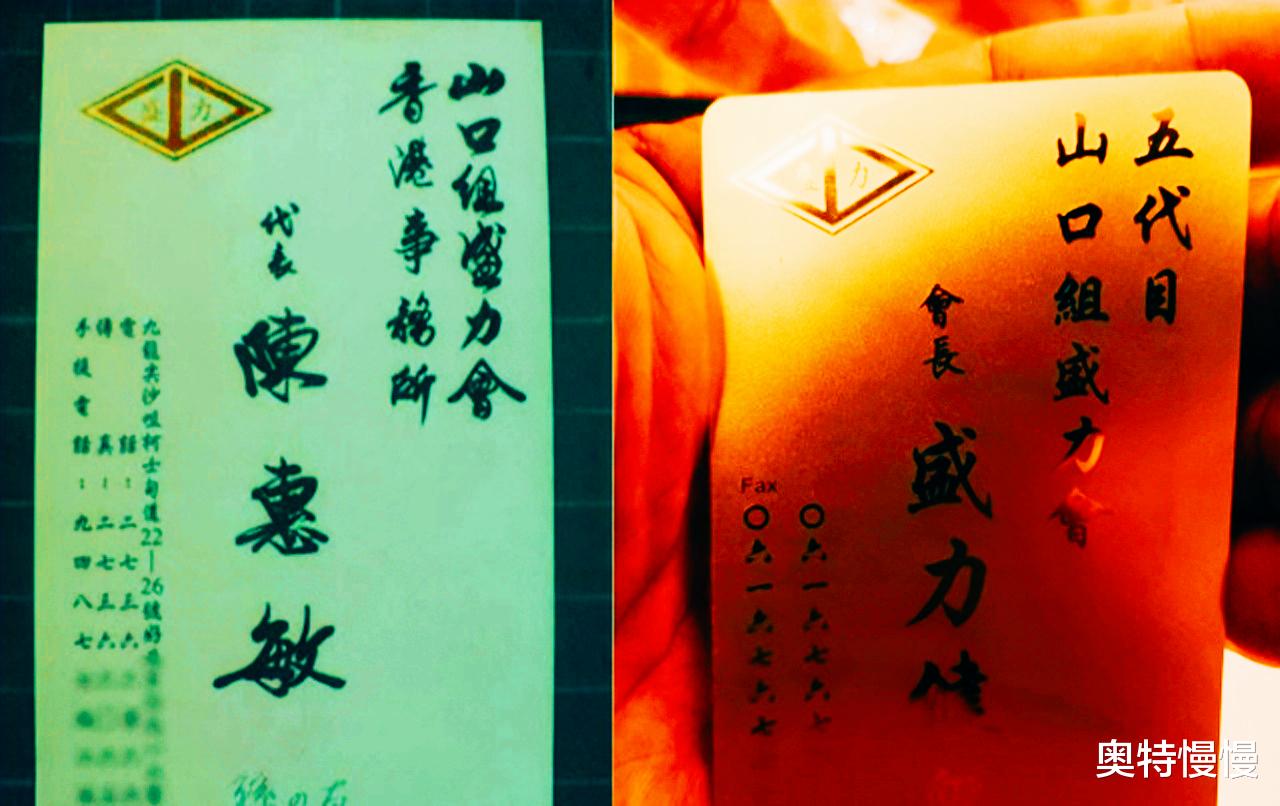 山口組盛力會
香港事務所
代表 陳惠敏
九龍尖沙咀柯士甸道22—26號好
電話：二七三六
傳真：二七三六
手提電話：九四八七
盛力
五代目
山口組盛力會
會長 盛力健
〇六一六七六七
Fax 〇六一六七六七
盛力
奥特慢慢